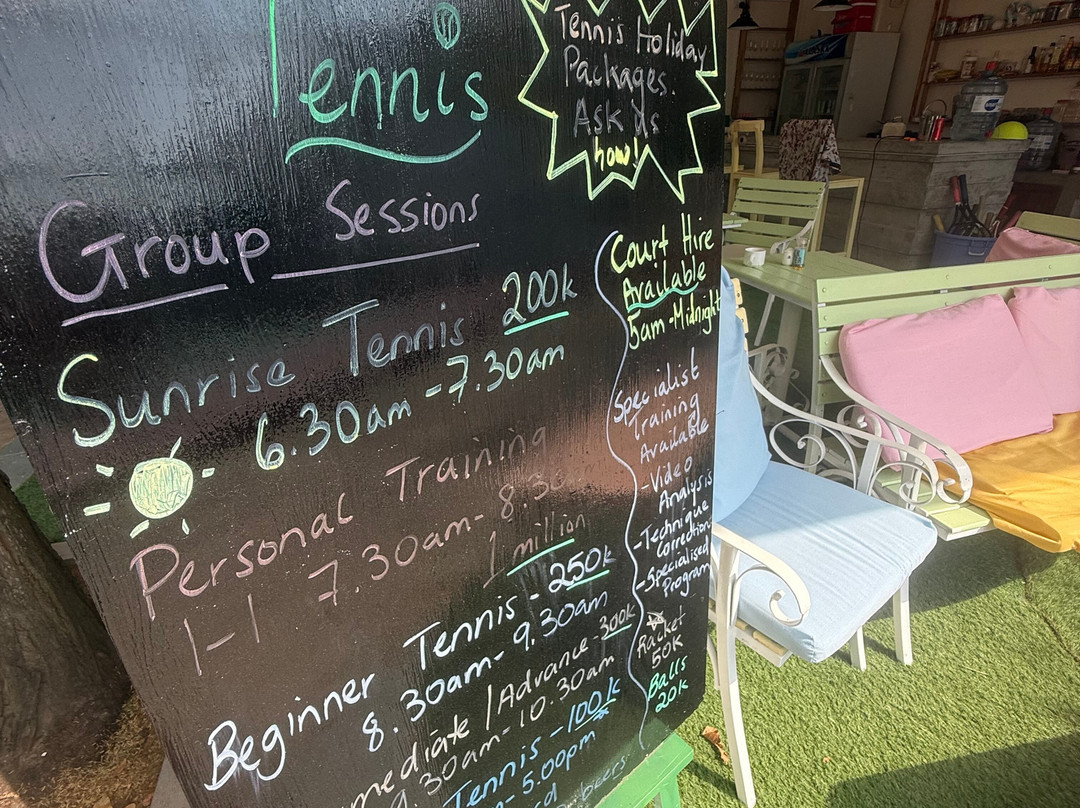 Tennis
Group Sessions
Sunrise Tennis 200k
6.30am - 7.30am
Personal Training
1-1 7.30am - 8.30
1 million
Beginner Tennis - 250k
8.30am - 9.30am
mediate / Advance - 300k
9.30am - 10.30am
Tennis - 100k
- 5.00pm
beers
Tennis Holiday
Packages.
Ask us
how!
Court Hire
Available
5am - Midnight
Specialist
Training
Available
- Video
Analysis
- Technique
Correction
- Specialised
Program
Racket
50K
Balls
20K